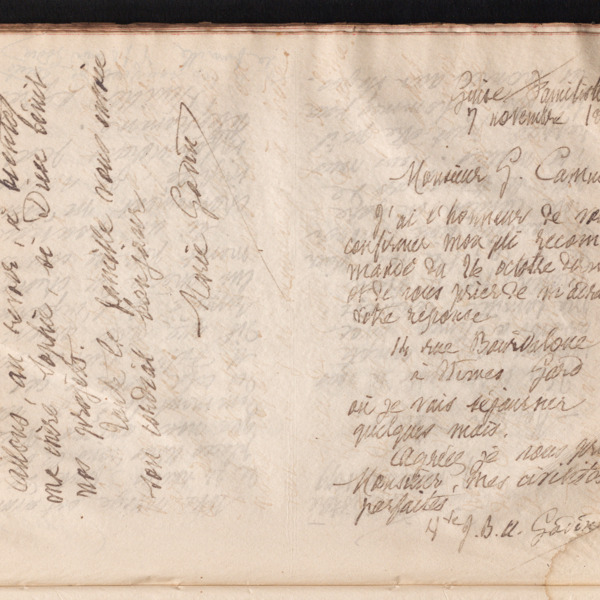 causons, au revoir, à bientôt
me chère Sophie, si Dieu bénit
nos projets.
Toute la famille vous envoie
son cordial bonjour
Marie Godin
Guise Familist
7 novembre 1
Monsieur G. Camu
J'ai l'honneur de vo
confirmer mon pli recom
mandé du 26 octobre
et de vous prier de m'adre
votre réponse
14 rue Bourdaloue
à Nimes Gard
où je vais séjourner
quelques mois.
Agréez je vous pr
Monsieur, mes civilités
parfaites
Vve J. B. A. Godin